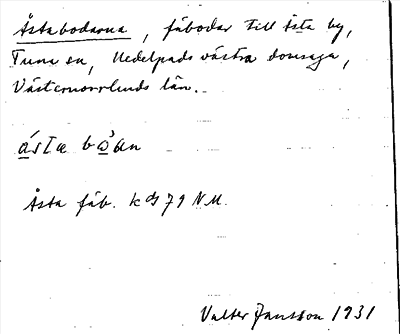 Åstabodarna, fäbodar till Åsta by,
Tuna sn, Medelpads västra domsaga,
Västernorrlands län.
åsta
Åsta fäb. kbl 79 NM.
Valter Jansson 1931